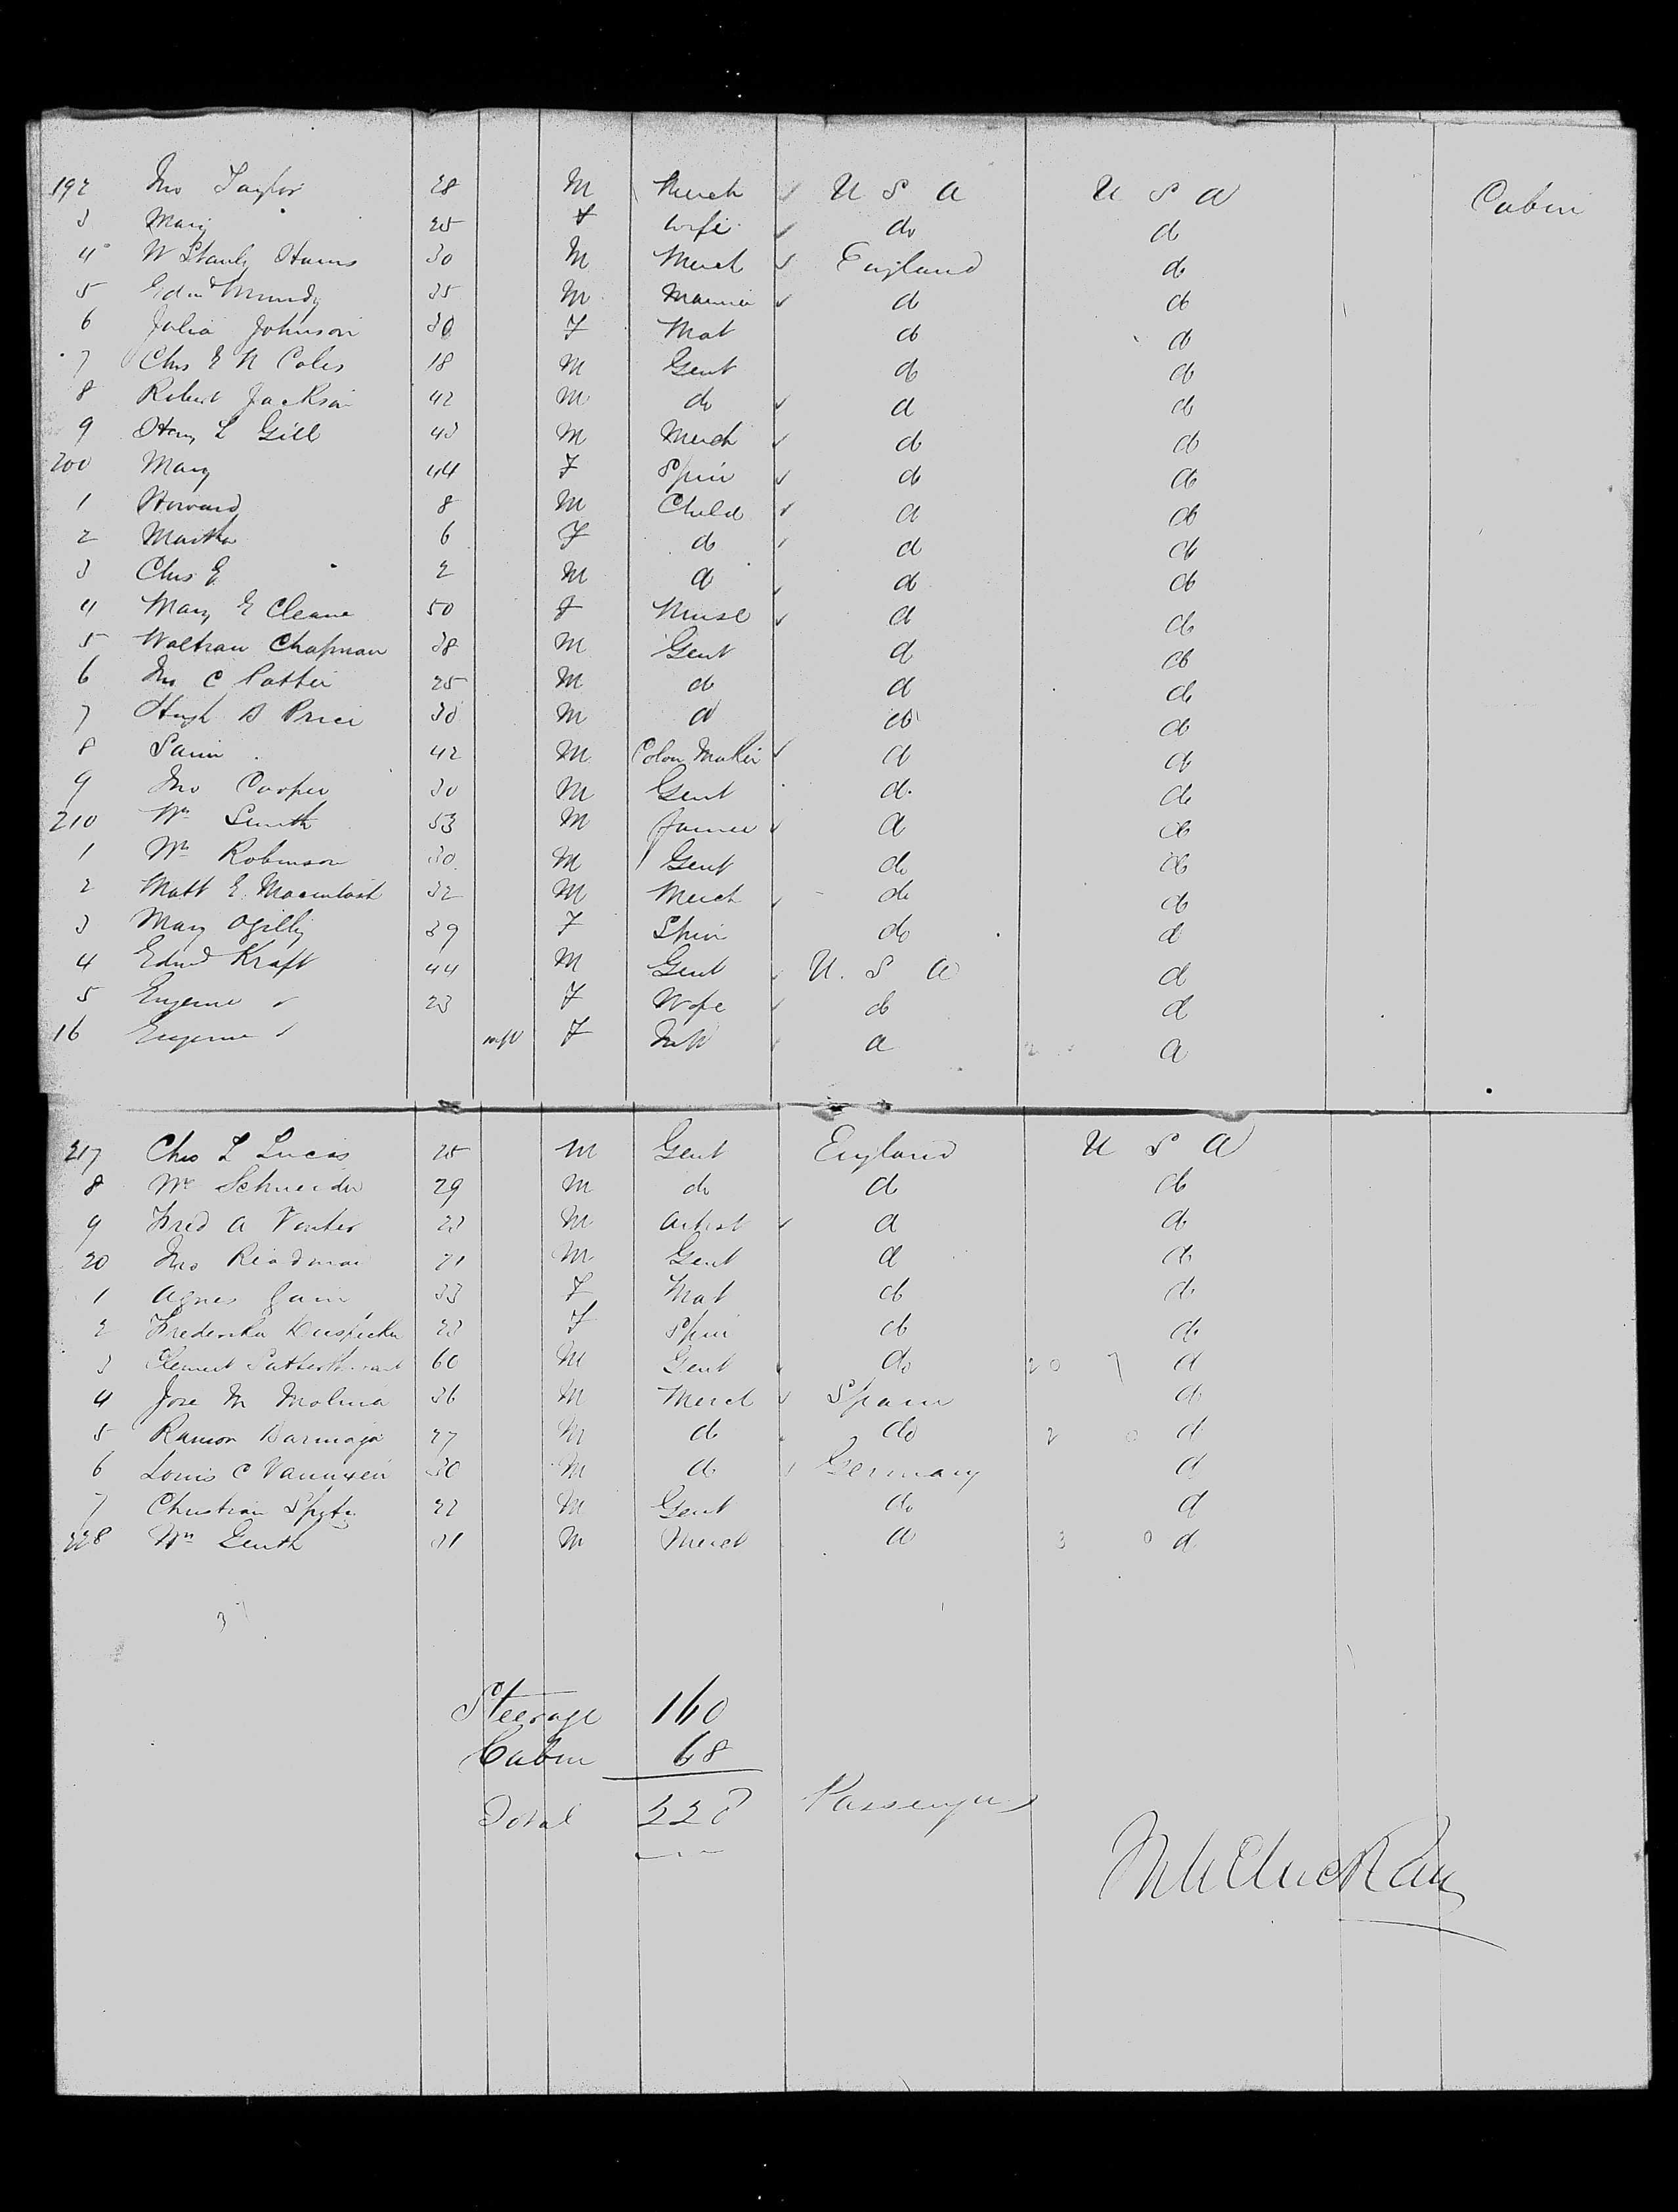 192 Jno Taylor 28 M Merch U S A U S A Cabin
3 Mary 25 F Wife do do
4 W Stanly Harris 30 M Merch England do
5 Edmd Mundy 35 M do do
6 Julia Johnson 30 F Mat do do
7 Chs E N Coles 18 M Gent do do
8 Robert Jackson 42 M do do do
9 Hary L Gill 43 M Merch do do
200 Mary 44 F Spin do do
1 Howard 8 M Child do do
2 Martha 6 F do do do
3 Chs E 2 M do do do
4 Mary E Cleane 50 F Nurse do do
5 Waltran Chapman 38 M Gent do do
6 Jno C Potter 25 M do do do
7 Hugh B Price 30 M do do do
8 42 M Colour Maker do do
9 Jno Cooper 30 M Gent do do
210 Wm Smith 53 M Farmer do do
1 Wm Robinson 30 M Gent do do
2 Matt E Macintosh 32 M Merch do do
3 Mary Ogilby 39 F Spin do do
4 Edmd Kraft 44 M Gent U.S A do
5 Eugenie 23 F Wife do do
16 Eugenie F Inft do do
217 Chas L Lucas 25 M Gent England U S A
8 Wm Schneider 29 M do do do
9 Fred A Venter 23 M Artist do do
20 Jno Readman 21 M Gent do do
1 Agnes 33 F Mat do do
2 Frederika 23 F Spin do do
3 Clement Satterthwait 60 M Gent do do
4 Jose M Molina 36 M Merch Spain do
5 Ramon 27 M do do do
6 Louis C Vanuxem 30 M do Germany do
7 Christian 22 M Gent do do
228 Wm Genth 31 M Merch do do
Steerage 160
Cabin 68
Total 228 Passengers